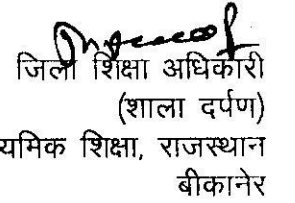 जिला शिक्षा अधिकारी
(शाला दर्पण)
यमिक शिक्षा, राजस्थान
बीकानेर